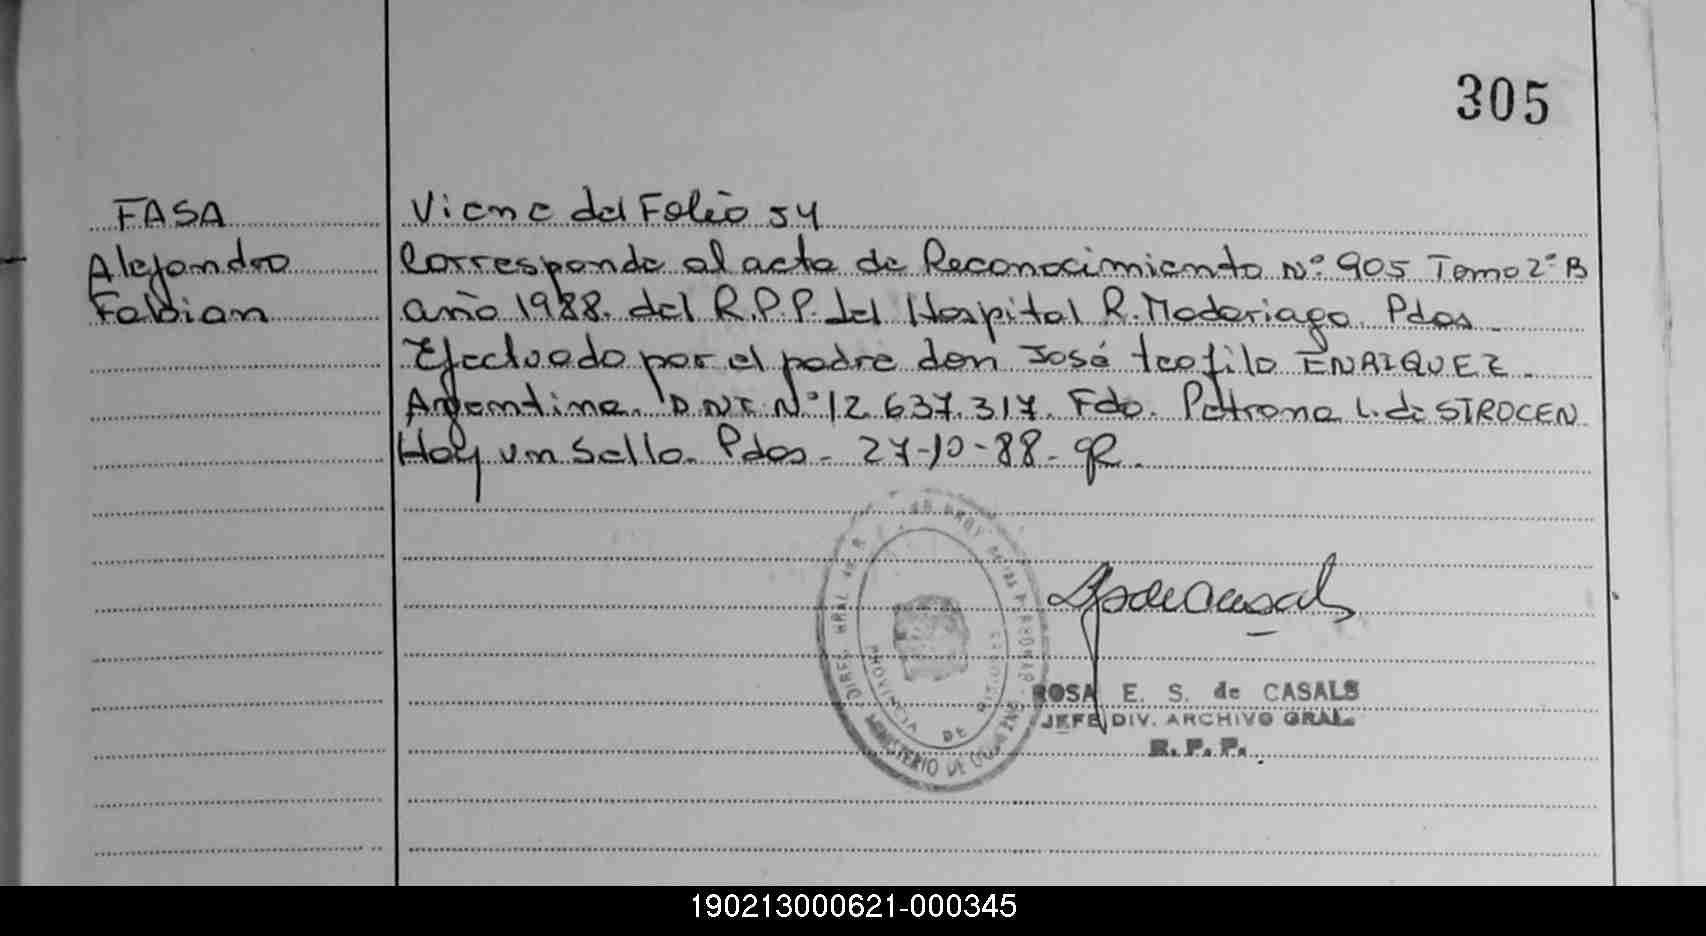 305
FASA
Alejandro
Fabian
Viene del Folio 54
Corresponde al acta de Reconocimiento Nº 905 Tomo 2º B
año 1988. del R.P.P. del Hospital R. Madariaga. Pdas.
Efectuado por el padre don José teofilo ENRIQUEZ.
Argentino. D.N.I. Nº 12.637.317. Fdo. Petrona L. de STROCEN
Hay un Sello. Pdas. 27-10-88-
PROVINCIA DE MISIONES
MINISTERIO DE
ROSA E. S. de CASALS
JEFE DIV. ARCHIVO GRAL.
R. P. P.
190213000621-000345